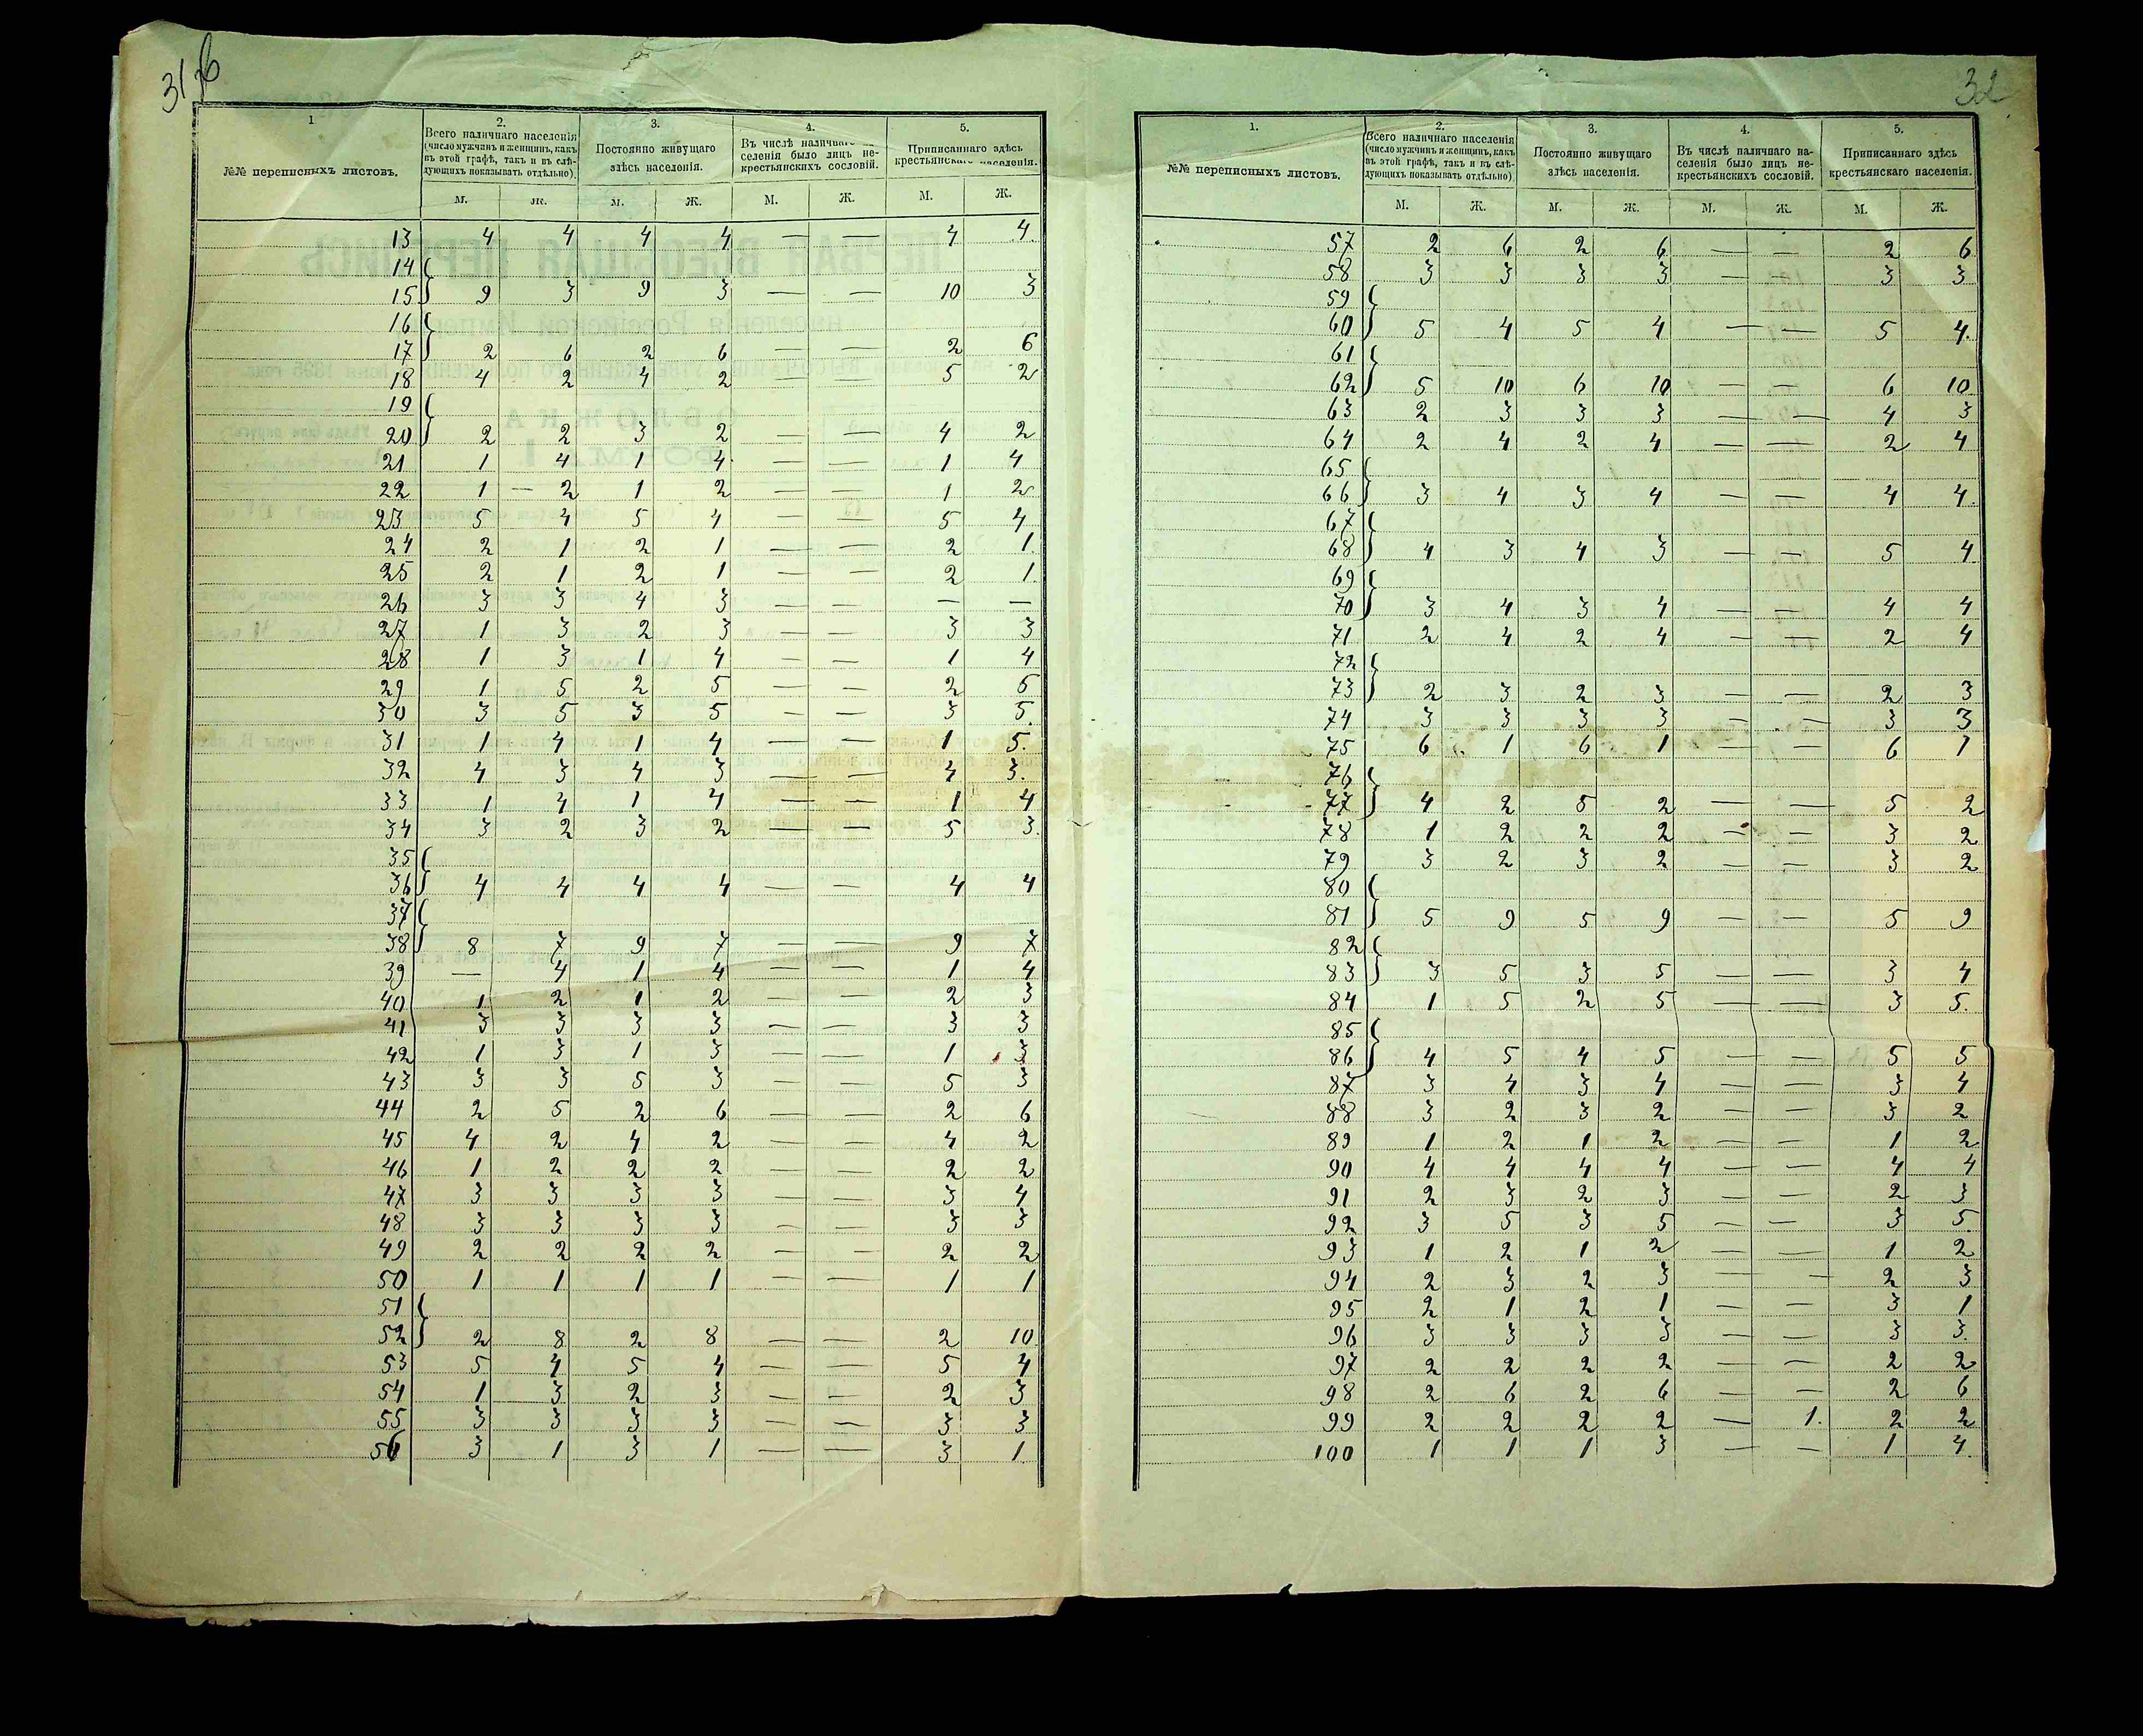 31 об
1
2.
3.
4.
5.
№№ переписныхъ листовъ.
Всего наличнаго населенія (число мужчинъ и женщинъ, какъ въ этой графѣ, такъ и въ слѣдующихъ показывать отдѣльно).
Постоянно живущаго здѣсь населенія.
Въ числѣ наличнаго населенія было лицъ не-крестьянскихъ сословій.
Приписаннаго здѣсь крестьянскаго населенія.
М. Ж. М. Ж. М. Ж. М. Ж.
13 4 4 4 4 — — 4 4.
14
15 9 3 9 3 — — 10 3
16
17 2 6 2 6 — — 2 6
18 4 2 4 2 — — 5 2
19
20 2 2 3 2 — — 4 2
21 1 4 1 4 — — 1 4
22 1 — 2 1 2 — — 1 2
23 5 4 5 4 — — 5 4
24 2 1 2 1 — — 2 1.
25 2 1 2 1 — — 2 1.
26 3 3 4 3 — — — —
27 1 3 2 3 — — 3 3
28 1 3 1 4 — — 1 4
29 1 5 2 5 — — 2 6
30 3 5 3 5 — — 3 5.
31 1 4 1 4 — — 1 5.
32 4 3 4 3 — — 4 3.
33 1 4 1 4 — — 1 4
34 3 2 3 2 — — 5 3.
35
36 4 4 4 4 — — 4 4
37
38 8 7 9 7 — — 9 7
39 — 4 1 4 — — 1 4
40 1 2 1 2 — — 2 3
41 3 3 3 3 — — 3 3
42 1 3 1 3 — — 1 3
43 3 3 5 3 — — 5 3
44 2 5 2 6 — — 2 6
45 4 2 4 2 — — 4 2
46 1 2 2 2 — — 2 2
47 3 3 3 3 — — 3 4
48 3 3 3 3 — — 3 3
49 2 2 2 2 — — 2 2
50 1 1 1 1 — — 1 1
51
52 2 8 2 8 — — 2 10
53 5 4 5 4 — — 5 4
54 1 3 2 3 — — 2 3
55 3 3 3 3 — — 3 3
56 3 1 3 1 — — 3 1.
32
1.
2.
3.
4.
5.
№№ переписныхъ листовъ.
Всего наличнаго населенія (число мужчинъ и женщинъ, какъ въ этой графѣ, такъ и въ слѣдующихъ показывать отдѣльно)
Постоянно живущаго здѣсь населенія.
Въ числѣ наличнаго населенія было лицъ не-крестьянскихъ сословій.
Приписаннаго здѣсь крестьянскаго населенія.
М. Ж. М. Ж. М. Ж. М. Ж.
57 2 6 2 6 — — 2 6
58 3 3 3 3 — — 3 3
59
60 5 4 5 4 — — 5 4.
61
62 5 10 6 10 — — 6 10
63 2 3 3 3 — — 4 3
64 2 4 2 4 — — 2 4
65
66 3 4 3 4 — — 4 4.
67
68 4 3 4 3 — — 5 4
69
70 3 4 3 4 — — 4 4
71 2 4 2 4 — — 2 4
72
73 2 3 2 3 — — 2 3
74 3 3 3 3 — — 3 3
75 6 1 6 1 — — 6 1
76
77 4 2 5 2 — — 5 2
78 1 2 2 2 — — 3 2
79 3 2 3 2 — — 3 2
80
81 5 9 5 9 — — 5 9
82
83 3 5 3 5 — — 3 4
84 1 5 2 5 — — 3 5.
85
86 4 5 4 5 — — 5 5
87 3 4 3 4 — — 3 4
88 3 2 3 2 — — 3 2
89 1 2 1 2 — — 1 2
90 4 4 4 4 — — 4 4
91 2 3 2 3 — — 2 3
92 3 5 3 5 — — 3 5.
93 1 2 1 2 — — 1 2
94 2 3 2 3 — — 2 3
95 2 1 2 1 — — 3 1
96 3 3 3 3 — — 3 3.
97 2 2 2 2 — — 2 2
98 2 6 2 6 — — 2 6
99 2 2 2 2 — 1. 2 2
100 1 1 1 3 — — 1 4.